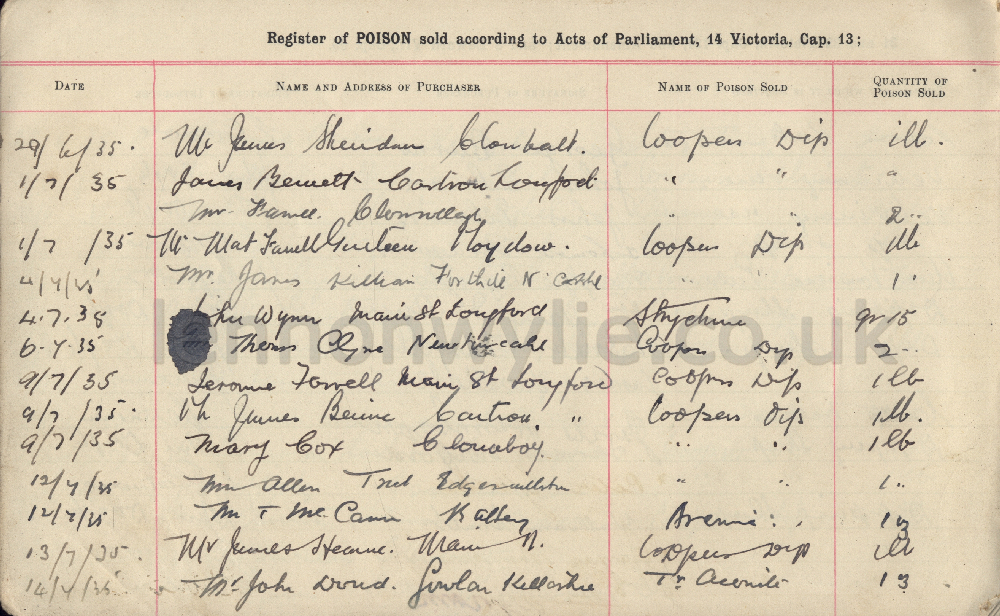 Register of POISON sold according to Acts of Parliament, 14 Victoria, Cap. 13;
DATE NAME AND ADDRESS OF PURCHASER NAME OF POISON SOLD QUANTITY OF POISON SOLD
29/6/35. Mr James Sheridan Clonbalt. Coopers Dip 1lb.
1/7/35 James Bennett Cartron Longford " " "
Mr. Farrell. " " 2 "
1/7/35 Mr Mat Farrell Gurteen Moydow. Coopers Dip 1lb
4/7/35 Mr. James Killian N' castle " 1 "
4.7.35 John Wynn Main St Longford Strychnine gr 15
6-7-35 Thomas Clyne Newtowncashel Coopers Dip 2 "
9/7/35 Jerome Farrell Main St Longford Coopers Dip 1lb
9/7/35. Mr James Beirne Cartron " Coopers Dip 1lb.
9/7/35 Mary Cox Clonaboy " " 1lb
12/7/35 Mr Allen Edgeworthstn " " 1 "
12/7/35 Mr T McCann 1
13/7/35. Mr James Hearne. Main St. Coopers Dip 1lb
14/7/35 Mr John Gowlan Killashee Tr. Aconite 1
lennonwylie.co.uk